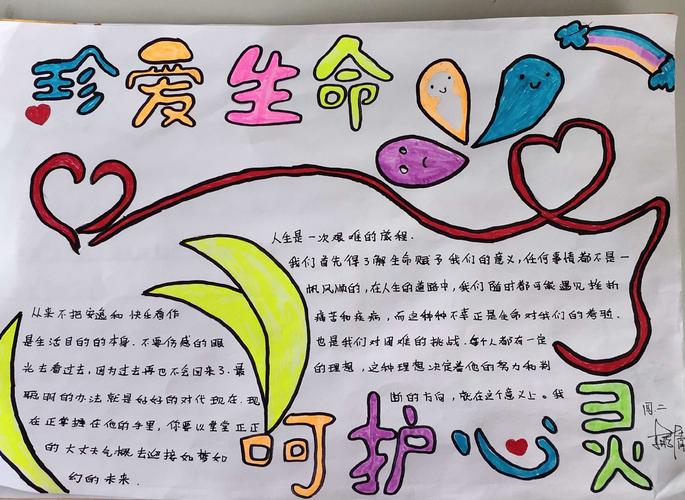 珍爱生命
人生是一次艰难的旅程.
我们首先得了解生命赋予我们的意义,任何事情都不是一
帆风顺的,在人生的道路中,我们随时都可能遇见挫断
痛苦和疾病,而这种种不幸正是生命对我们的考验.
也是我们对困难的挑战.每个人都有一定
的理想,这种理想决定着他的努力和判
断的方向,就在这个意义上.我
从来不把安逸和快乐看作
是生活目的的本身.不要伤感的眼
光去看过去,因为过去再也不会回来了.最
聪明的办法就是好好的对代现在.现
在正掌握在他的手里,你要以堂堂正正
的大丈夫气概去迎接如梦如
幻的未来.
呵护心灵